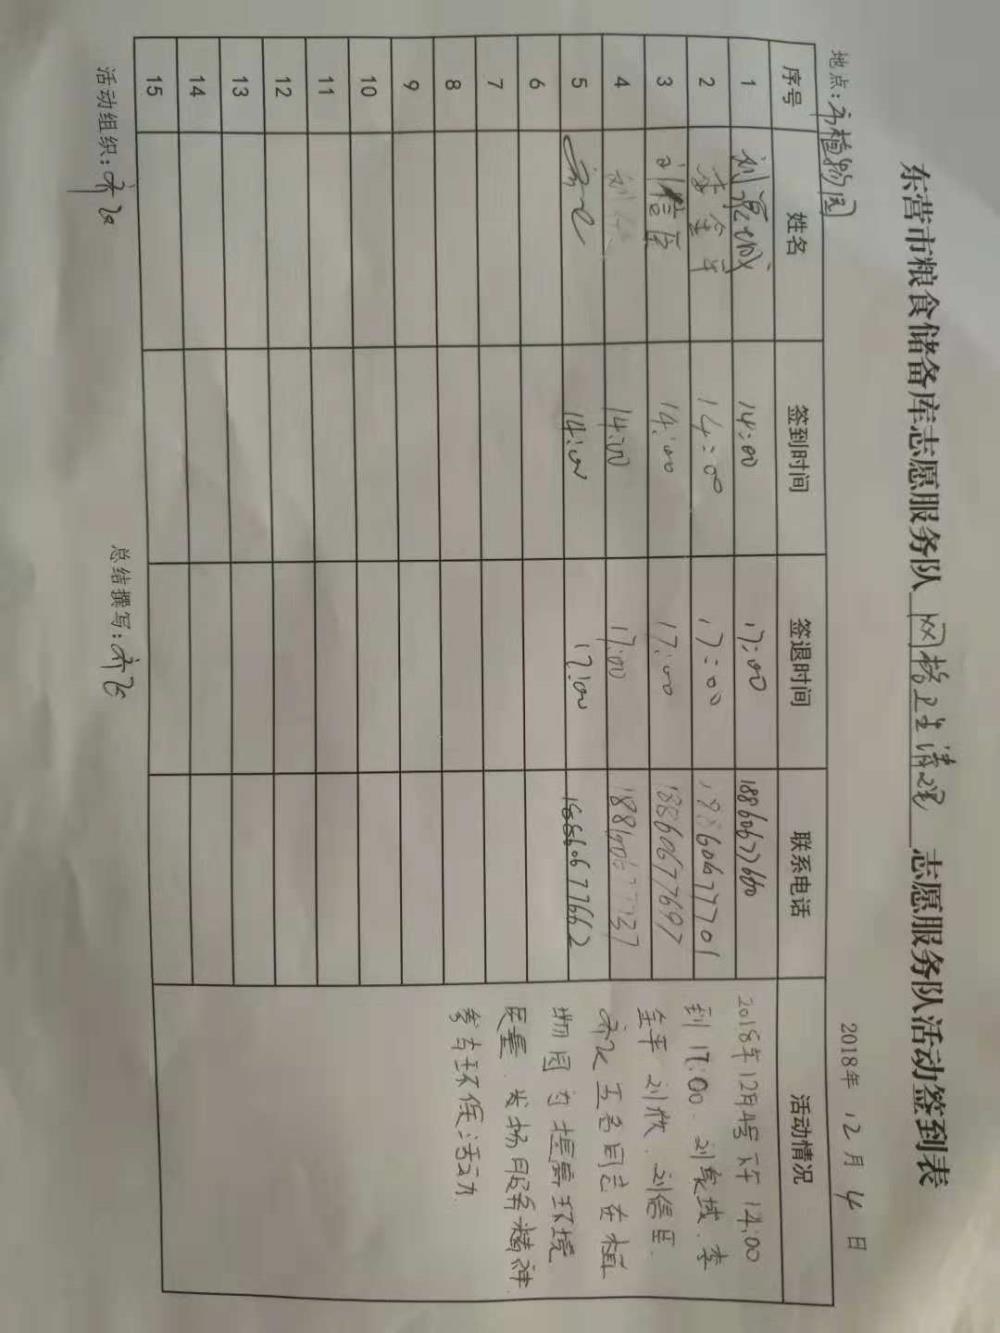 东营市粮食储备库志愿服务队 网格卫生清理 志愿服务队活动签到表
地点：市植物园 2018年 12月 4日
序号 姓名 签到时间 签退时间 联系电话 活动情况
1 14:00 17:00 18860677660
2 李金平 14:00 17:00
3 刘信臣 14:00 17:00 18860677697
4 刘欣 14:00 17:00
5 14:00 17:00 18860677662
6
7
8
9
10
11
12
13
14
15
2018年12月4号下午14:00
到17:00. 刘景城. 李
金平 刘欣. 刘信臣.
五名同志在植
物园为提高环境
质量. 发扬服务精神
参与环保活动
活动组织： 总结撰写：